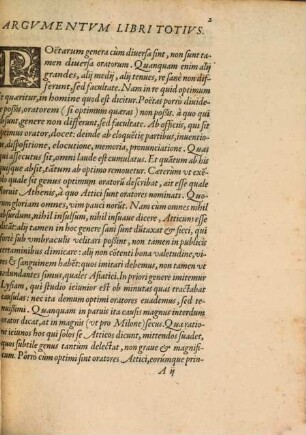 2
ARGVMENTVM LIBRI TOTIVS.
POëtarum genera cùm diuersa sint, non sunt ta-
men diuersa oratorum. Quanquam enim alij
grandes, alij medij, alij tenues, re sanè non dif-
ferunt, sed facultate. Nam in re quid optimum
sit quæritur, in homine quod est dicitur. Poëtas porrò diuide-
re possis, oratorem (si optimum quæras) non possis. à quo qui
absunt, genere non differunt, sed facultate. Ab officiis, qui sit
optimus orator, docet: deinde ab eloquẽtiæ partibus, inuentio-
ne, dispositione, elocutione, memoria, pronunciatione. Quas
qui assecutus sit, omni laude est cumulatus. Et quātum ab his
quisque absit, tātum ab optimo remouetur. Cæterum vt exẽ-
plo quale sit genus optimum oratorũ describat, ait esse quale
fuerit Athenis, à quo Attici sunt oratores nominati. Quo-
rum gloriam omnes, vim pauci norūt. Nam cùm omnes nihil
absurdum, nihil insulsum, nihil inuaue dicere, Atticum esse
dicāt: alij tamen in hoc genere sani sunt dūtaxat & sicci, qui
possunt sub vmbraculis velitari possint, non tamen in publicis
certaminibus dimicare: alij non cōtenti bona valetudine, vi-
rium & sanguinem habẽt: quos imitari debemus, non tamen vt
redundantes simus, quales Asiatici. In priori genere imitemur
Lysiam, qui studio ieiunior est ob minutas quas tractabat
causulas: nec ita demum optimi oratores euademus, sed te-
nuissimi. Quanquam in paruis ita causis magnus interdum
orator dicat, at in magnis (vt pro Milone) secus. Qua ratio-
ne ieiunos hos qui solos se Atticos dicunt, mittendos suadet,
quos subtile genus tantùm delectat, non graue & magnifi-
cum. Pòrro cùm optimi sint oratores Attici, eorúmque prin-
A ij